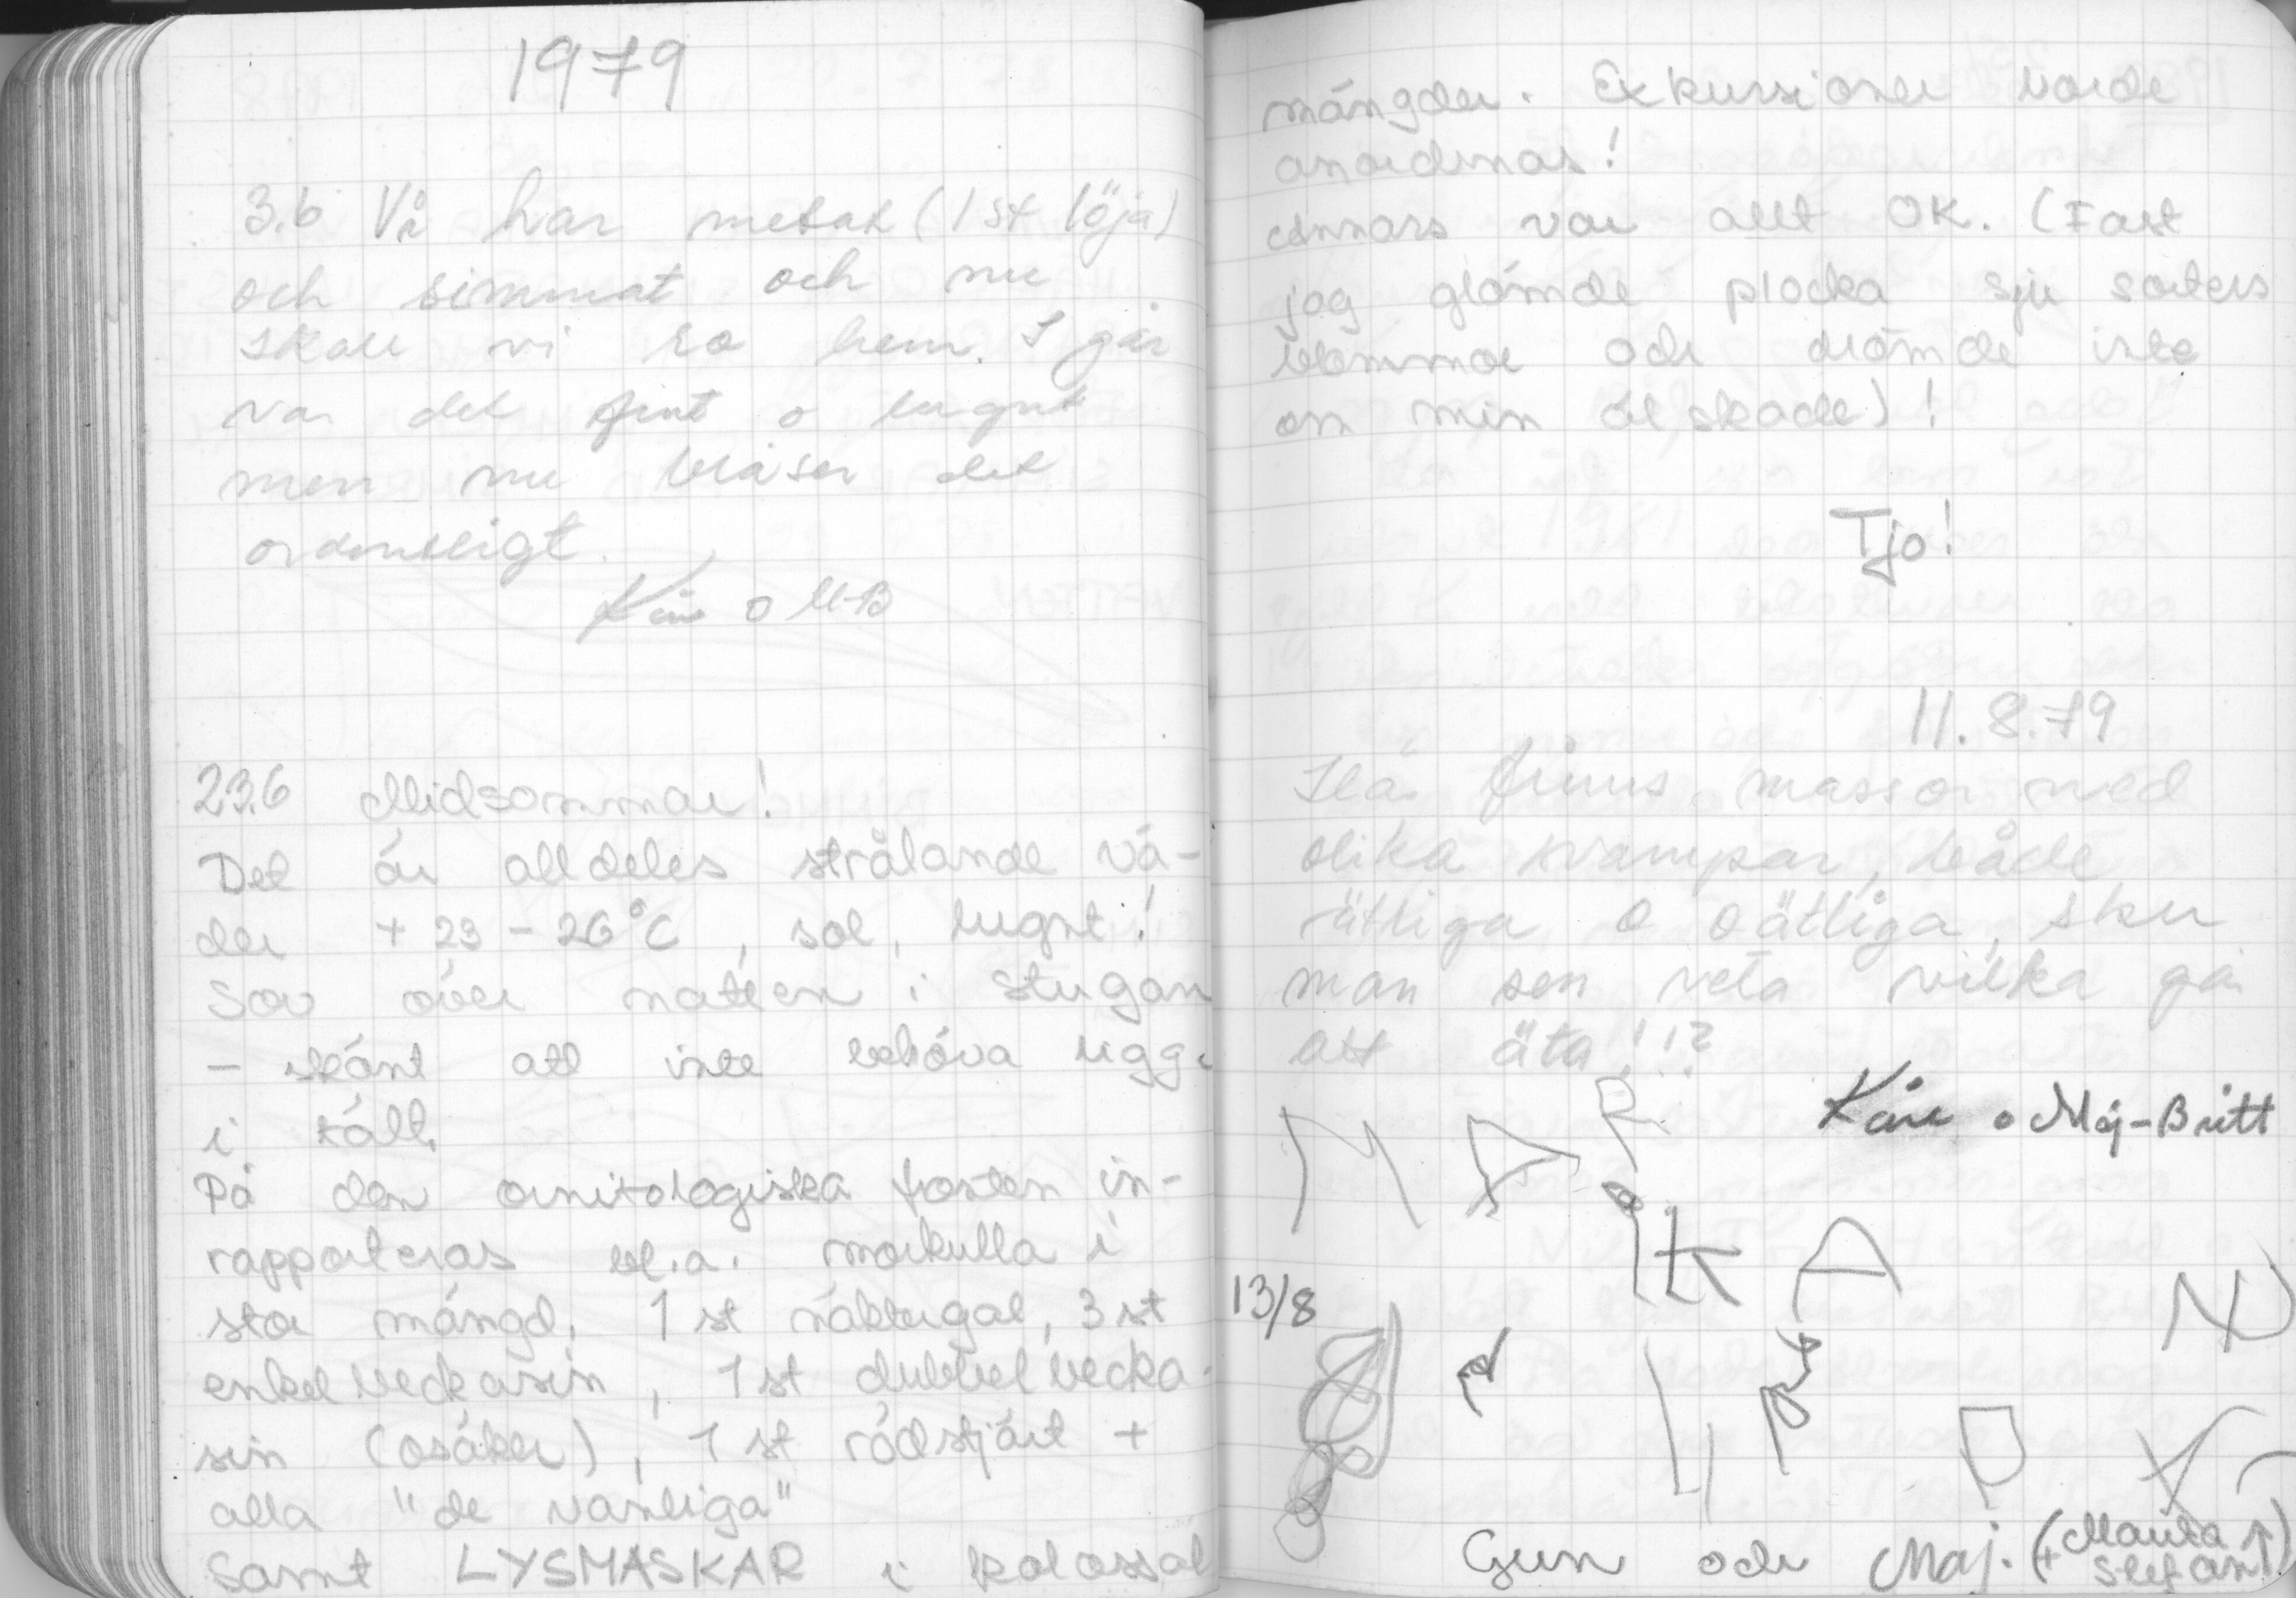 1979
3.6 Vi har metat (1 st löja)
och simmat och nu
skall vi ro hem. I går
var det fint o lugnt
men nu blåser det
ordentligt.
Kåre o M-B
23.6 Midsommar!
Det är alldeles strålande vä-
der +23-26°C, sol, lugnt!
Sov över natten i stugan
– skönt att inte behöva ligga
i tält.
På den ornitologiska fronten in-
rapporteras bl.a. morkulla i
stor mängd, 1 st näktergal, 3 st
enkelbeckasin, 1 st dubbelbecka-
sin (osäker), 1 st rödstjärt +
alla "de vanliga"
Samt LYSMASKAR i kolossal
mängder. Exkursioner borde
anordnas!
annars var allt OK. (Fast
jag glömde plocka sju sorters
blommor och drömde inte
om min älskade)!
Tjo!
11.8.79
Här finns massor med
olika svampar, både
ätliga o oätliga, sku
man sen veta vilka går
att äta!!?
Kåre o Maj-Britt
MARiKA
13/8
Gun och Maj. (Marika ↑)
+ Stefan